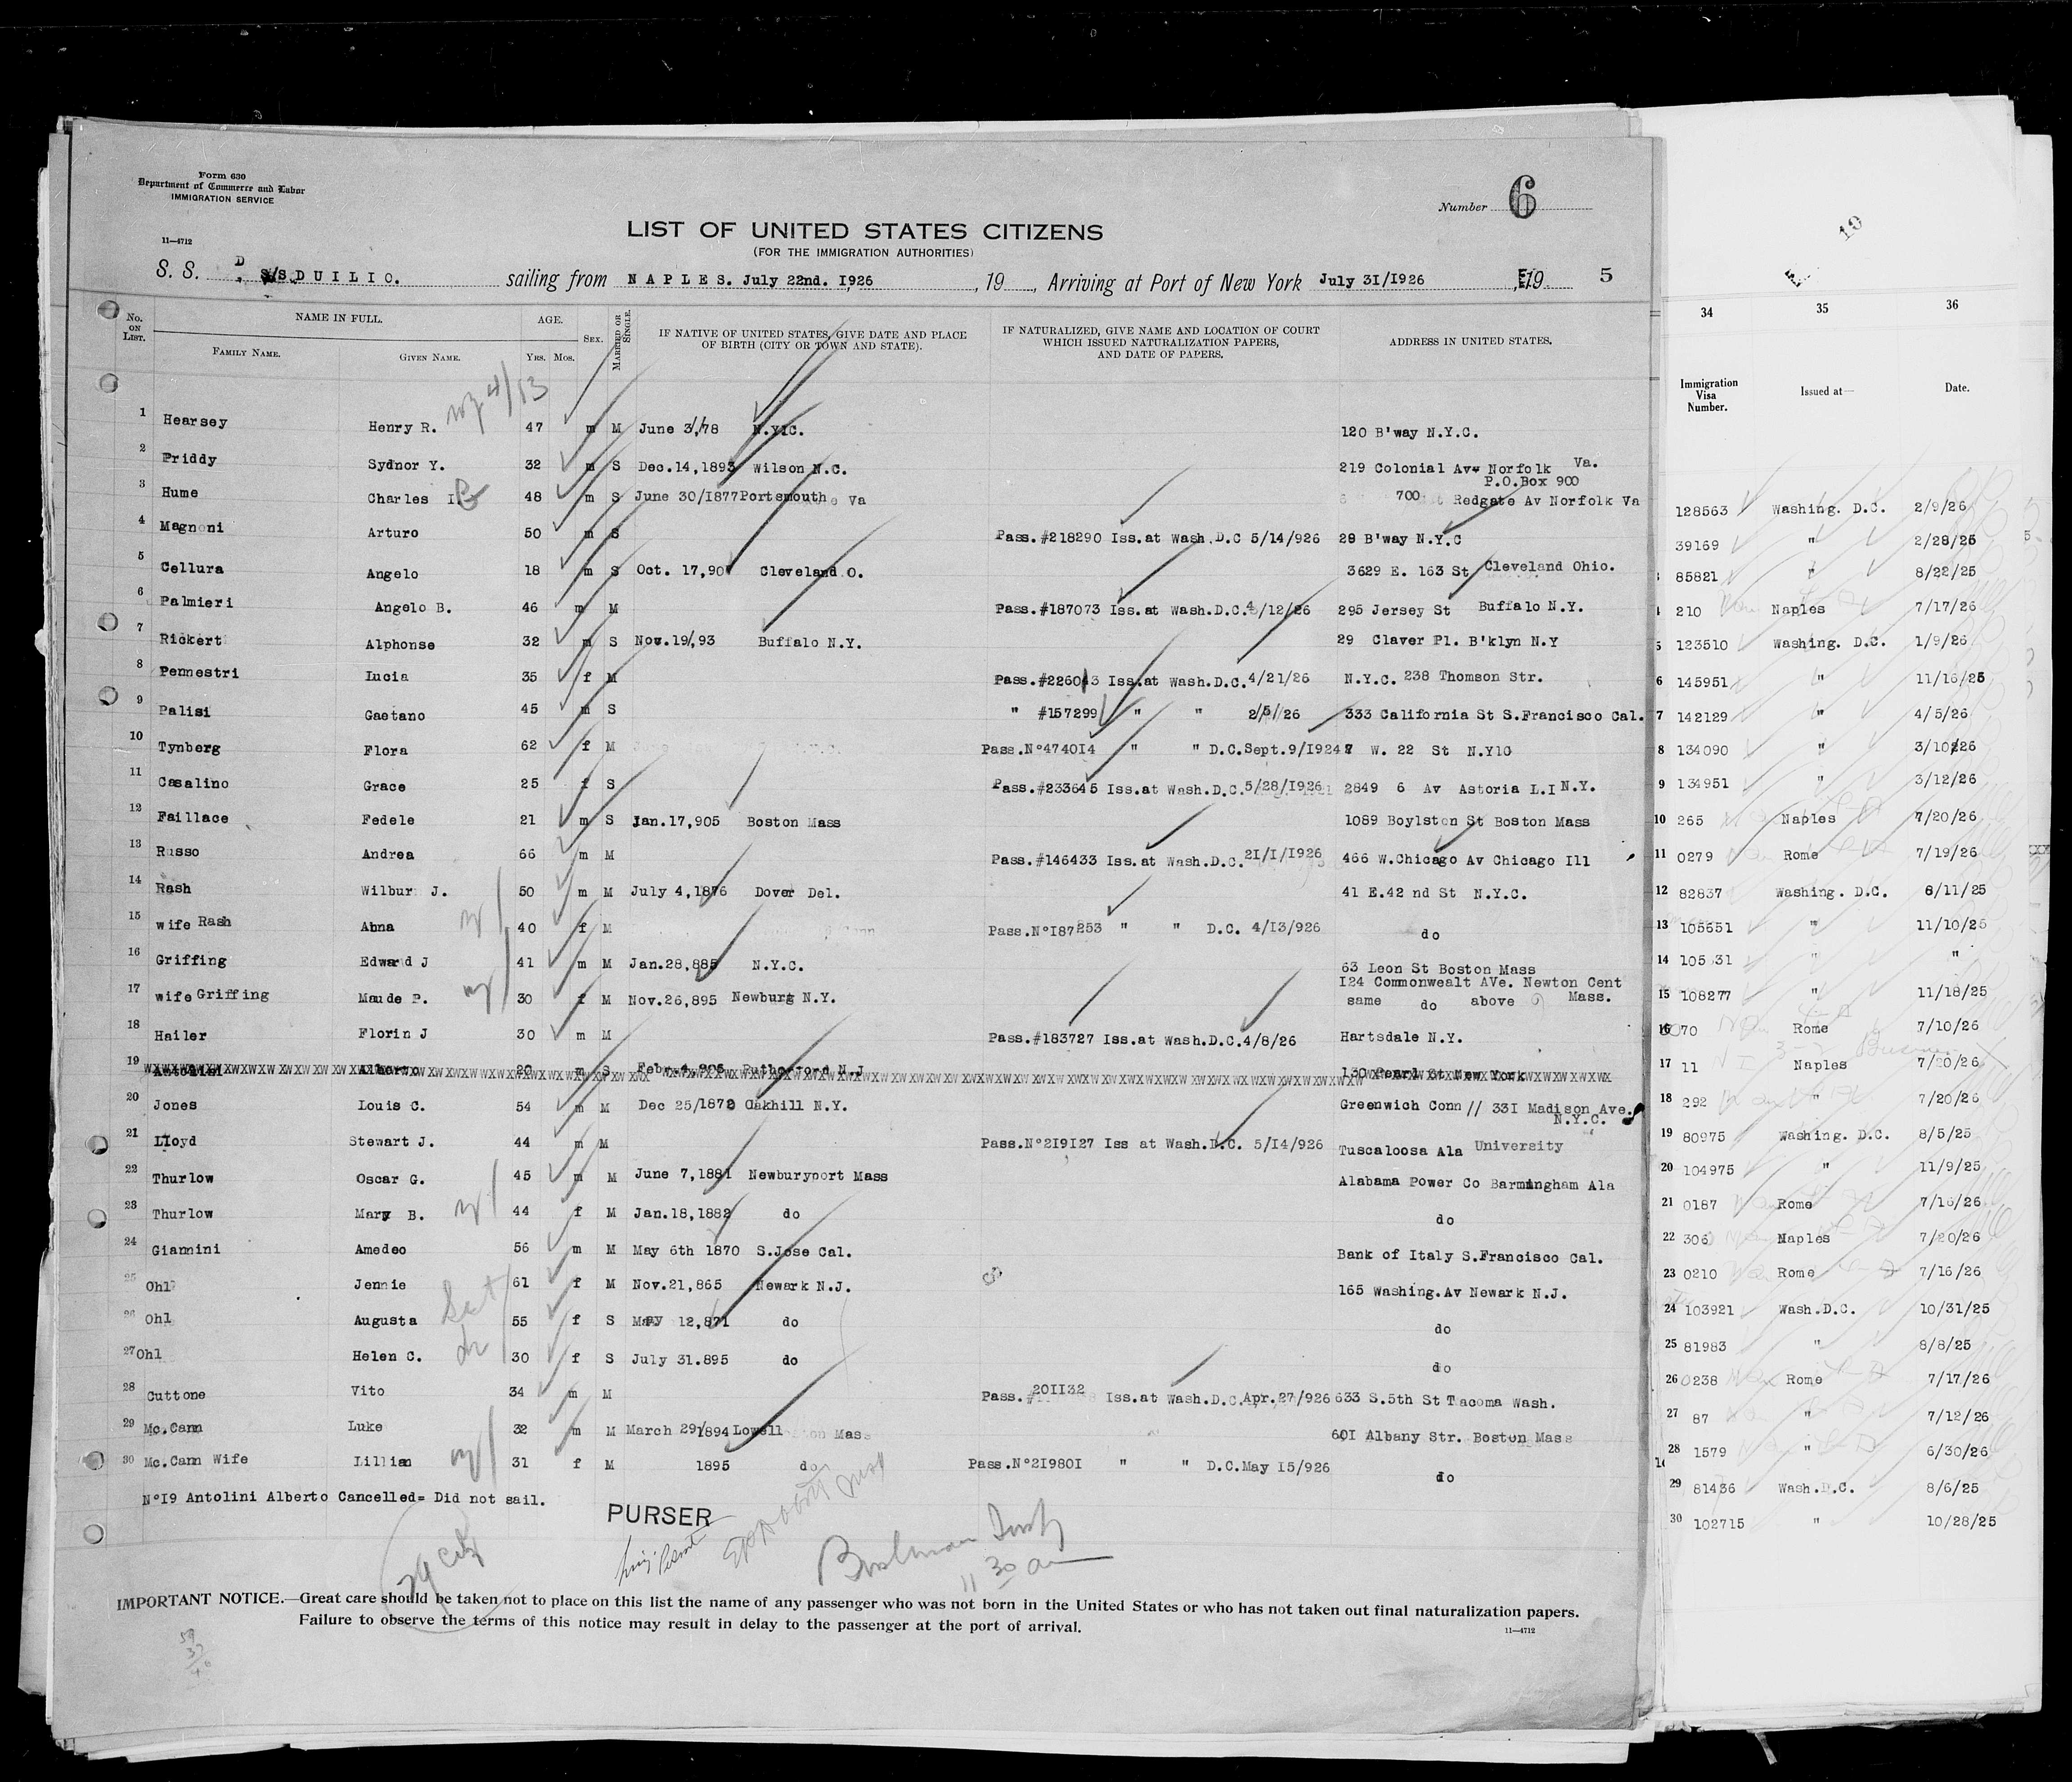 Form 630
Department of Commerce and Labor
IMMIGRATION SERVICE
Number 6
11—4712
LIST OF UNITED STATES CITIZENS
(FOR THE IMMIGRATION AUTHORITIES)
S. S. D S/S DUILIO. sailing from NAPLES. July 22nd. I926, 19 , Arriving at Port of New York July 31/1926 , 19 5
No. ON LIST. NAME IN FULL. AGE. SEX. MARRIED OR SINGLE. IF NATIVE OF UNITED STATES, GIVE DATE AND PLACE OF BIRTH (CITY OR TOWN AND STATE). IF NATURALIZED, GIVE NAME AND LOCATION OF COURT WHICH ISSUED NATURALIZATION PAPERS, AND DATE OF PAPERS. ADDRESS IN UNITED STATES.
FAMILY NAME. GIVEN NAME. YRS. MOS.
1 Hearsey Henry R. 47 m M June 3/78 N.Y.C. 120 B'way N.Y.C.
2 Priddy Sydnor Y. 32 m S Dec.14,1893 Wilson N.C. 219 Colonial Av Norfolk Va.
P.O.Box 900
3 Hume Charles 48 m S June 30/I877 Portsmouth Va 700 Redgate Av Norfolk Va
4 Magnoni Arturo 50 m S Pass.#218290 Iss.at Wash.D.C 5/14/926 28 B'way N.Y.C
5 Cellura Angelo 18 m S Oct. 17,907 Cleveland O. 3629 E. 163 St Cleveland Ohio.
6 Palmieri Angelo B. 46 m M Pass.#187073 Iss.at Wash.D.C.4/12/26 295 Jersey St Buffalo N.Y.
7 Rickert Alphonse 32 m S Nov.19/,93 Buffalo N.Y. 29 Claver Pl. B'klyn N.Y
8 Pennestri Lucia 35 f M Pass.#226043 Iss.at Wash.D.C.4/21/26 N.Y.C. 238 Thomson Str.
9 Palisi Gaetano 45 m S " #157299 " " 2/5/26 333 California St S.Francisco Cal.
10 Tynberg Flora 62 f M Pass.N°474014 " " D.C.Sept.9/I924 W. 22 St N.Y1C
11 Casalino Grace 25 f S Pass.#233645 Iss.at Wash.D.C.5/28/I926 2849 6 Av Astoria L.I N.Y.
12 Faillace Fedele 21 m S Jan.17,905 Boston Mass 1089 Boylston St Boston Mass
13 Russo Andrea 66 m M Pass.#146433 Iss.at Wash.D.C.21/I/I926 466 W.Chicago Av Chicago Ill
14 Rash Wilbur J. 50 m M July 4,1876 Dover Del. 41 E.42 nd St N.Y.C.
15 wife Rash Anna 40 f M Pass.N°I87253 " " D.C. 4/I3/926 do
16 Griffing Edward J 41 m M Jan.28,885 N.Y.C. 63 Leon St Boston Mass
17 wife Griffing Maude P. 30 f M Nov.26,895 Newburg N.Y. I24 Commonwealt AVe. Newton Cent Mass.
same do above
18 Hailer Florin J 30 m M Pass.#183727 Iss.at Wash.D.C.4/8/26 Hartsdale N.Y.
19 Antolini Alberto 20 m S Febr.4,906 Rutherford N.J 130 Pearl St New York
20 Jones Louis C. 54 m M Dec 25/1872 Oakhill N.Y. Greenwich Conn // 33I Madison Ave.
N.Y.C.
21 Lloyd Stewart J. 44 m M Pass.N°219I27 Iss at Wash.D.C. 5/I4/926 Tuscaloosa Ala University
22 Thurlow Oscar G. 45 m M June 7,1881 Newburyport Mass Alabama Power Co Barmingham Ala
23 Thurlow Mary B. 44 f M Jan.18,1882 do do
24 Giannini Amedeo 56 m M May 6th 1870 S.Jose Cal. Bank of Italy S.Francisco Cal.
25 Ohl Jennie 61 f M Nov.21,865 Newark N.J. 165 Washing.Av Newark N.J.
26 Ohl Augusta 55 f S May 12,871 do do
27 Ohl Helen C. 30 f S July 31.895 do do
28 Cuttone Vito 34 m M Pass.#20II32 Iss.at Wash.D.C.Apr.27/926 633 S.5th St Tacoma Wash.
29 Mc.Cann Luke 32 m M March 29/1894 Lowell Mass 60I Albany Str. Boston Mass
30 Mc.Cann Wife Lillian 31 f M 1895 do Pass.N°219801 " " D.C.May I5/926 do
N°I9 Antolini Alberto Cancelled= Did not sail.
PURSER
11 30 am
IMPORTANT NOTICE.—Great care should be taken not to place on this list the name of any passenger who was not born in the United States or who has not taken out final naturalization papers.
Failure to observe the terms of this notice may result in delay to the passenger at the port of arrival.
11—4712
10
34 35 36
Immigration Visa Number. Issued at— Date.
128563 Washing. D.C. 2/9/26
39169 " 2/28/25
85821 " 8/22/25
210 Naples 7/17/26
5 123510 Washing. D.C. 1/9/26
6 145951 " 11/16/25
7 142129 " 4/5/26
8 134090 " 3/10/26
9 134951 " 3/12/26
10 265 Naples 7/20/26
11 0279 Rome 7/19/26
12 82837 Washing. D.C. 8/11/25
13 105651 " 11/10/25
14 105 31 " "
15 108277 " 11/18/25
16 70 Rome 7/10/26
17 11 Naples 7/20/26
18 292 " 7/20/26
19 80975 Washing. D.C. 8/5/25
20 104975 " 11/9/25
21 0187 Rome 7/16/26
22 306 Naples 7/20/26
23 0210 Rome 7/16/26
24 103921 Wash.D.C. 10/31/25
25 81983 " 8/8/25
26 0238 Rome 7/17/26
27 87 " 7/12/26
28 1579 " 6/30/26
29 81436 Wash.D.C. 8/6/25
30 102715 " 10/28/25